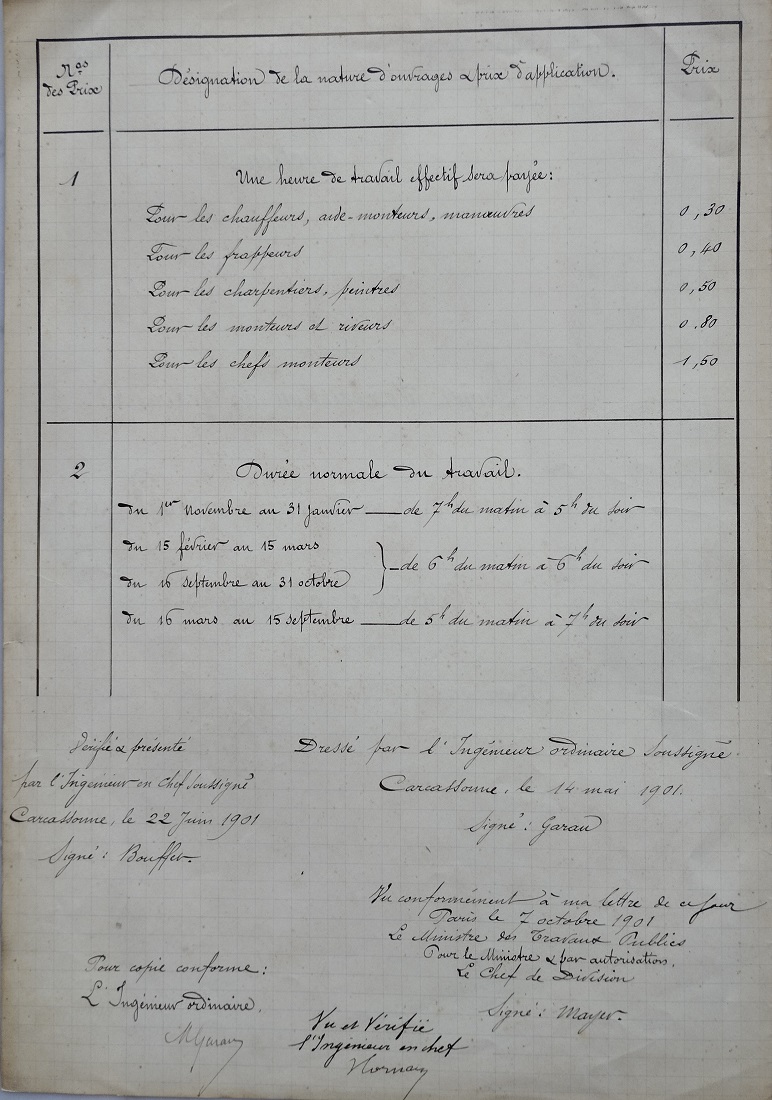 Nos des Prix
Désignation de la nature d'ouvrages & prix d'application.
Prix
1
Une heure de travail effectif sera payée :
Pour les chauffeurs, aide-monteurs, manœuvres 0,30
Pour les frappeurs 0,40
Pour les charpentiers, peintres 0,50
Pour les monteurs et riveurs 0.80
Pour les chefs monteurs 1,50
2
Durée normale du travail.
du 1er Novembre au 31 janvier — de 7h du matin à 5h du soir
du 15 février au 15 mars
du 16 septembre au 31 octobre
— de 6h du matin à 6h du soir
du 16 mars au 15 septembre — de 5h du matin à 7h du soir
Vérifié & présenté
par l'Ingénieur en chef soussigné
Carcassonne, le 22 Juin 1901
Signé : Bouffet.
Dressé par l'Ingénieur ordinaire soussigné.
Carcassonne, le 14 mai 1901.
Signé : Garau
Vu conformément à ma lettre de ce jour
Paris le 7 octobre 1901
Le Ministre des Travaux Publics
Pour le Ministre & par autorisation.
Le Chef de Division
Signé : Mayer.
Pour copie conforme :
L'Ingénieur ordinaire.
MGarau
Vu et Vérifié
l'Ingénieur en chef